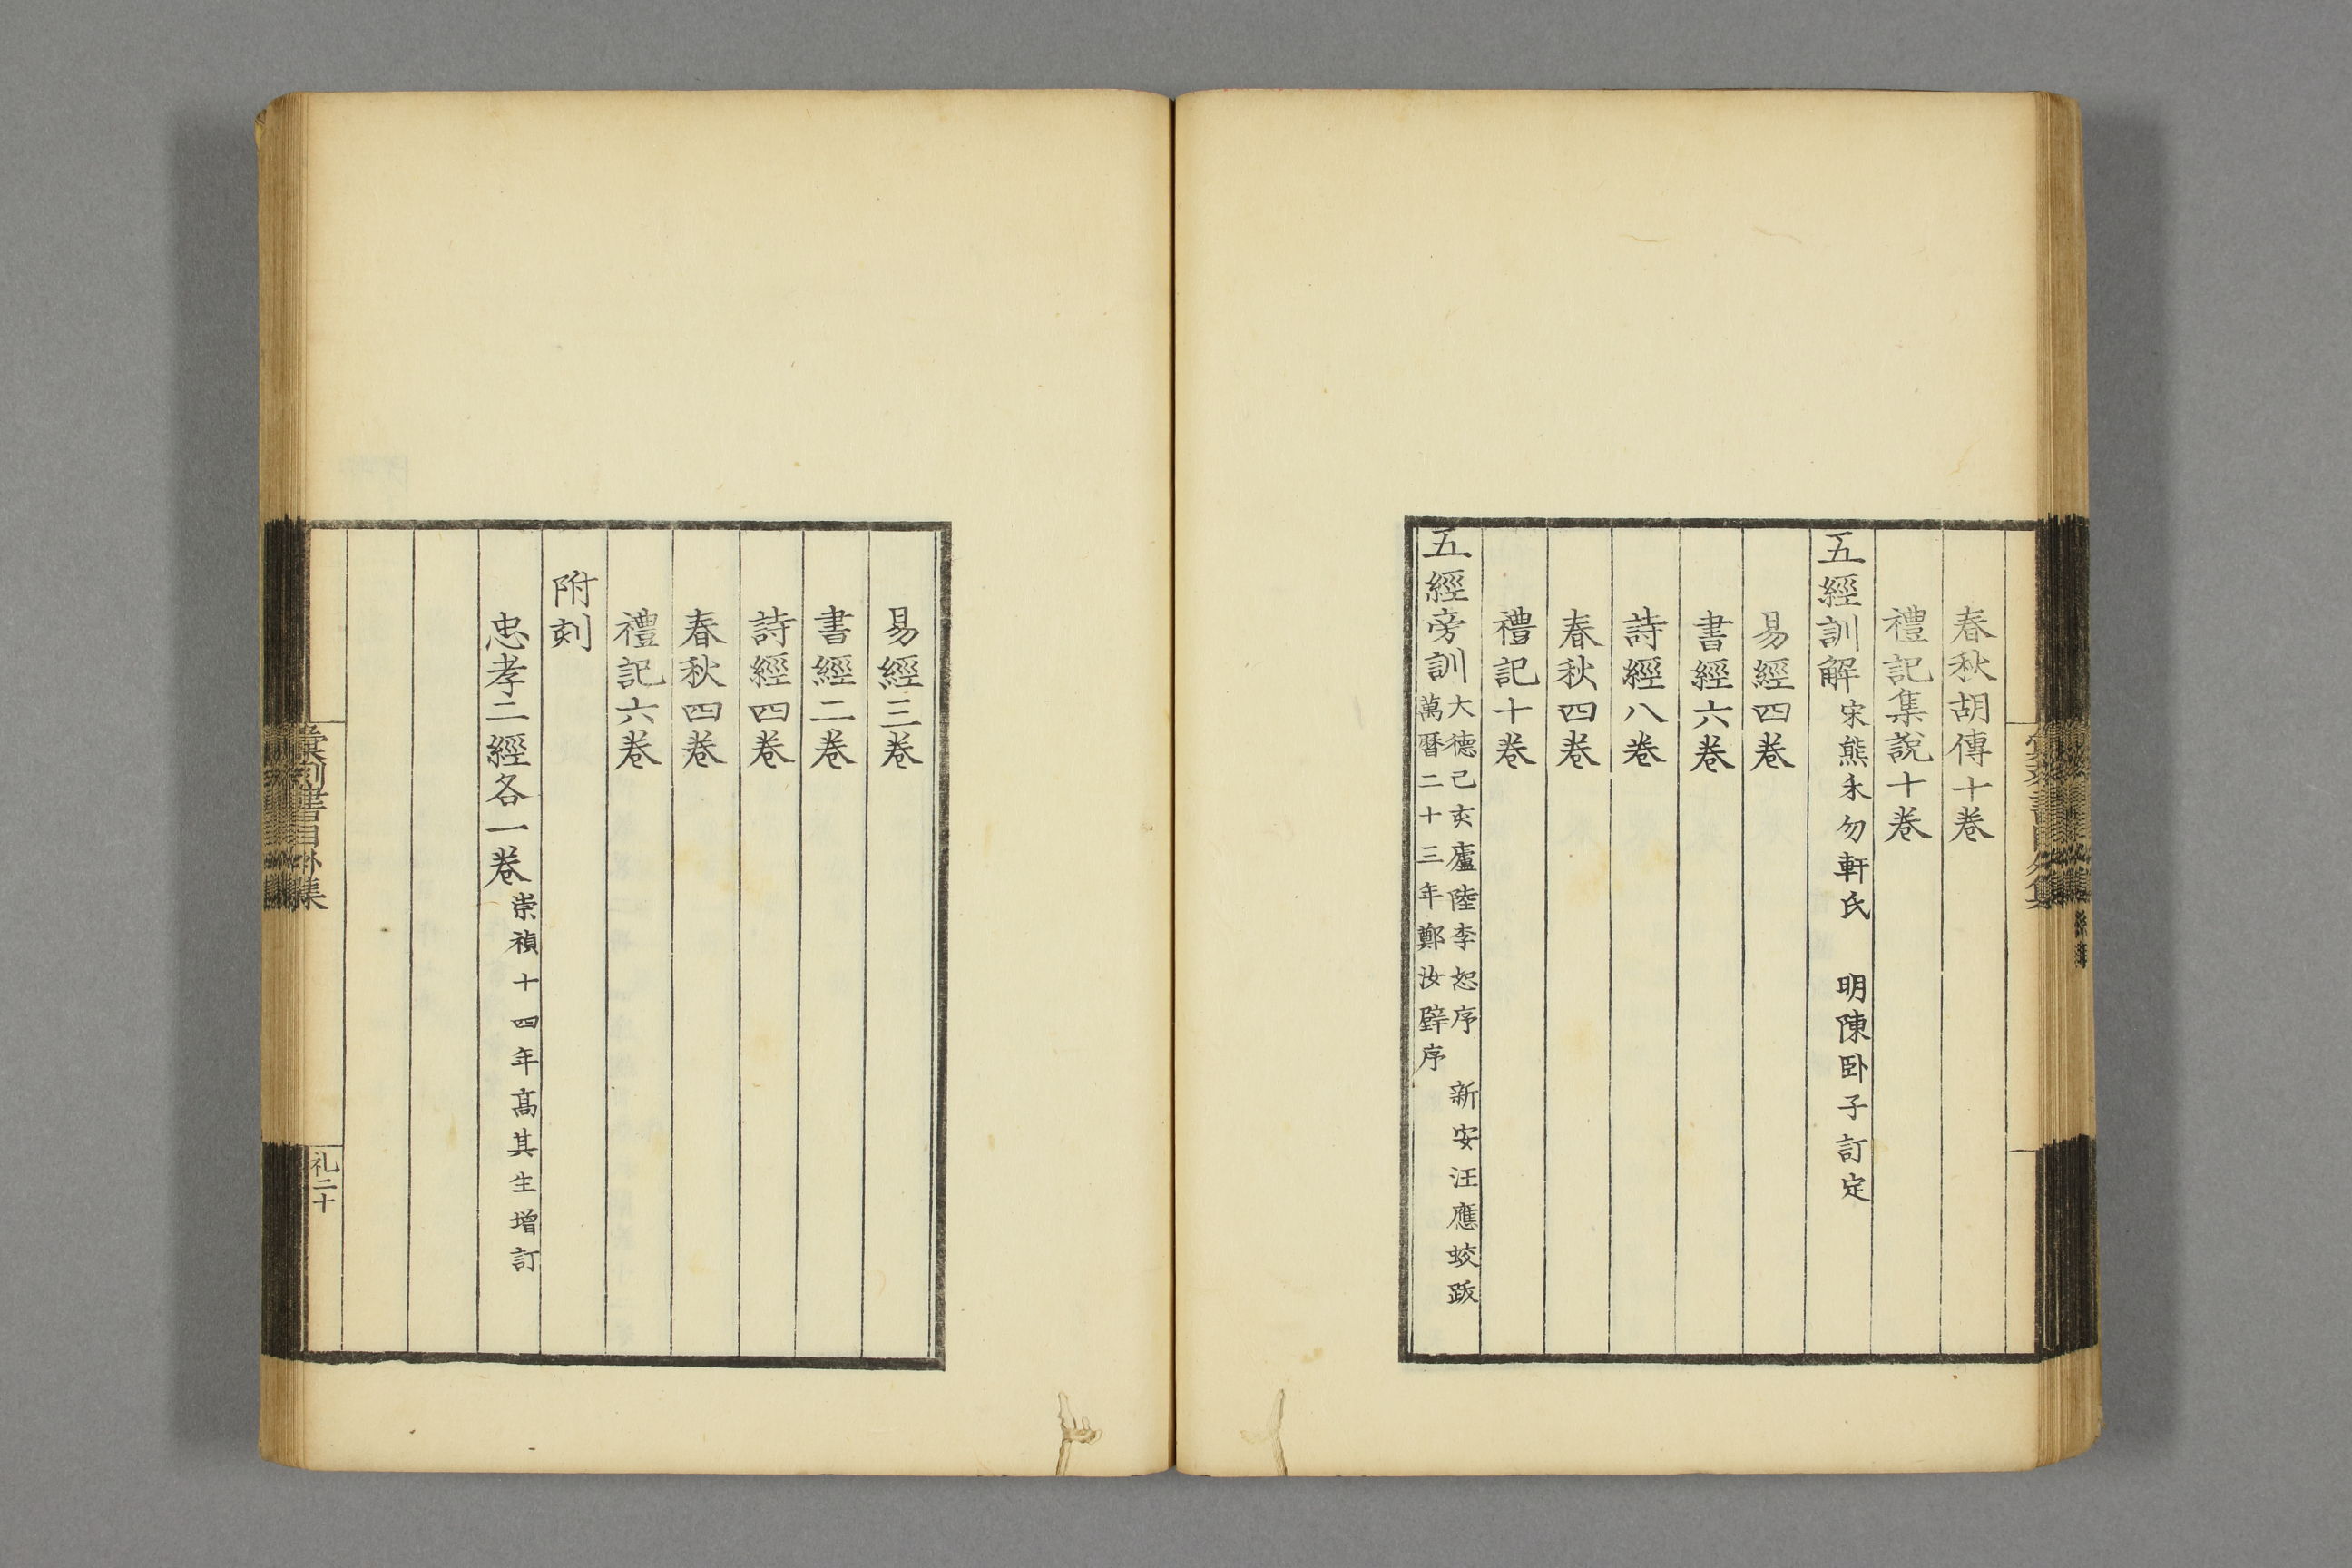 春秋胡傳十巻
禮記集說十巻
五經訓解 宋熊禾勿軒氏 明陳卧子訂定
易經四巻
書經六巻
詩經八巻
春秋四巻
禮記十巻
五經旁訓 大德己亥廬陵李恕序 新安汪應蛟跋
萬曆二十三年鄭汝璧序
易經三巻
書經二巻
詩經四巻
春秋四巻
禮記六巻
附刻
忠孝二經各一巻 崇禎十四年高其生增訂
彙刻書目外集
礼二十